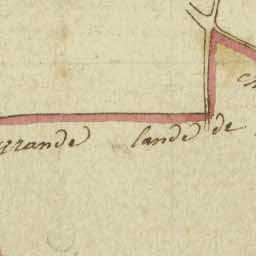 grande lande de